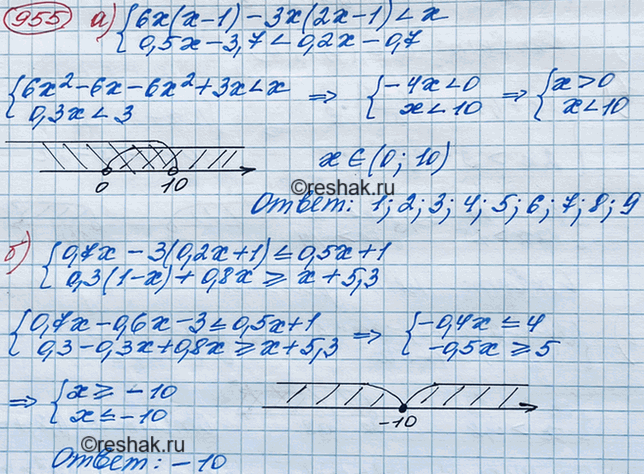 955 а) { 6x(x-1) - 3x(2x-1) < x
0,5x - 3,7 < 0,2x - 0,7
{ 6x² - 6x - 6x² + 3x < x ⇒ { -4x < 0 ⇒ { x > 0
0,3x < 3 x < 10 x < 10
0 10
x ∈ (0; 10)
©reshak.ru
Ответ: 1; 2; 3; 4; 5; 6; 7; 8; 9
б) { 0,7x - 3(0,2x+1) ≤ 0,5x+1
0,3(1-x) + 0,8x ≥ x + 5,3
{ 0,7x - 0,6x - 3 ≤ 0,5x+1 ⇒ { -0,4x ≤ 4
0,3 - 0,3x + 0,8x ≥ x + 5,3 -0,5x ≥ 5
⇒ { x ≥ -10
x ≤ -10
-10
©reshak.ru
Ответ: -10